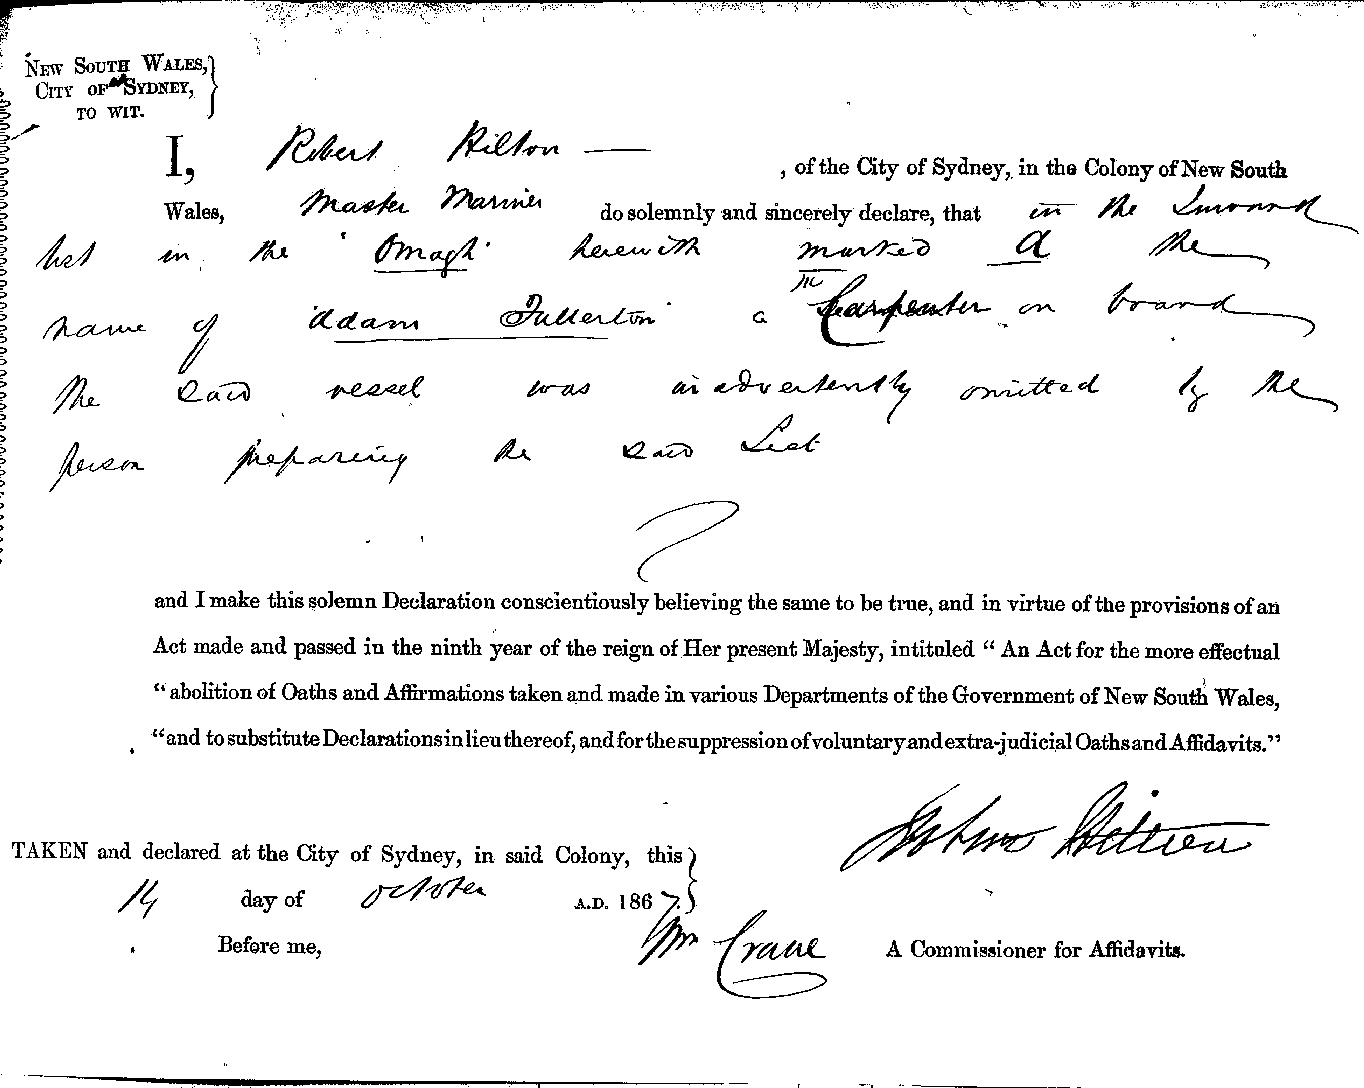 NEW SOUTH WALES,
CITY OF SYDNEY,
TO WIT.
I, Robert Hilton — , of the City of Sydney, in the Colony of New South
Wales, Master Mariner do solemnly and sincerely declare, that in the
list in the 'Omagh' herewith marked A the
name of 'Adam Fullerton' a Carpenter on board
the said vessel was inadvertently omitted by the
person preparing the said List
and I make this solemn Declaration conscientiously believing the same to be true, and in virtue of the provisions of an
Act made and passed in the ninth year of the reign of Her present Majesty, intituled " An Act for the more effectual
" abolition of Oaths and Affirmations taken and made in various Departments of the Government of New South Wales,
"and to substitute Declarations in lieu thereof, and for the suppression of voluntary and extra-judicial Oaths and Affidavits."
TAKEN and declared at the City of Sydney, in said Colony, this
14 day of October A.D. 1867.
Before me, Wm Crane A Commissioner for Affidavits.